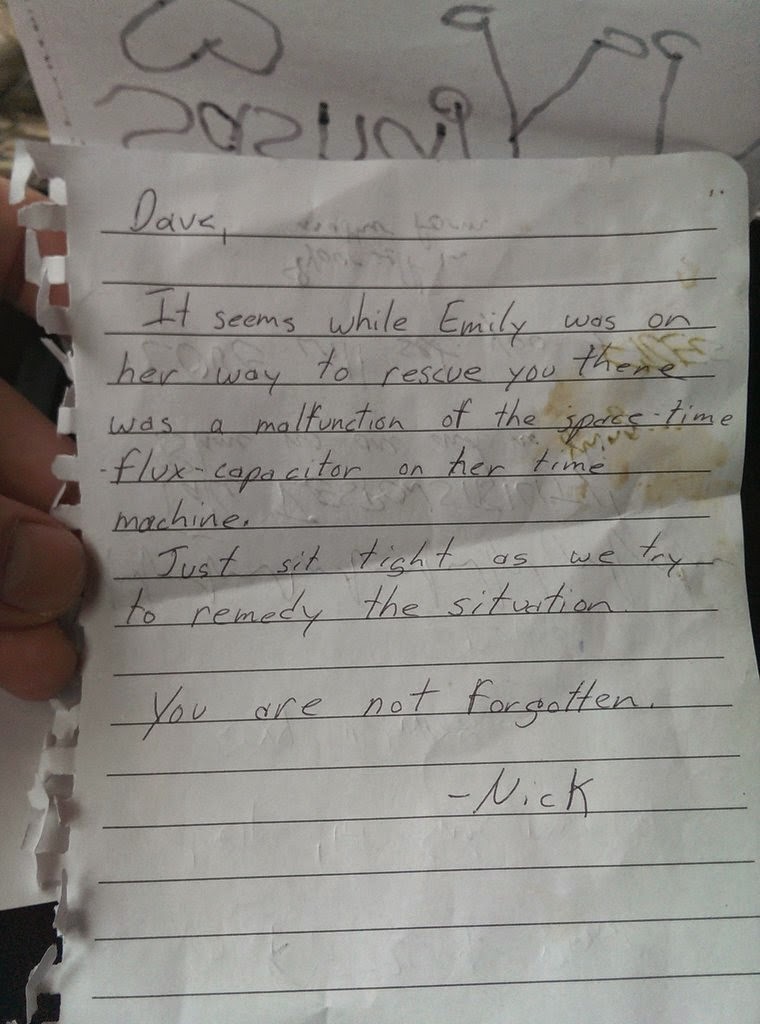 Dave,
It seems while Emily was on
her way to rescue you there
was a malfunction of the space-time
-flux-capacitor on her time
machine.
Just sit tight as we try
to remedy the situation.
You are not forgotten.
-Nick